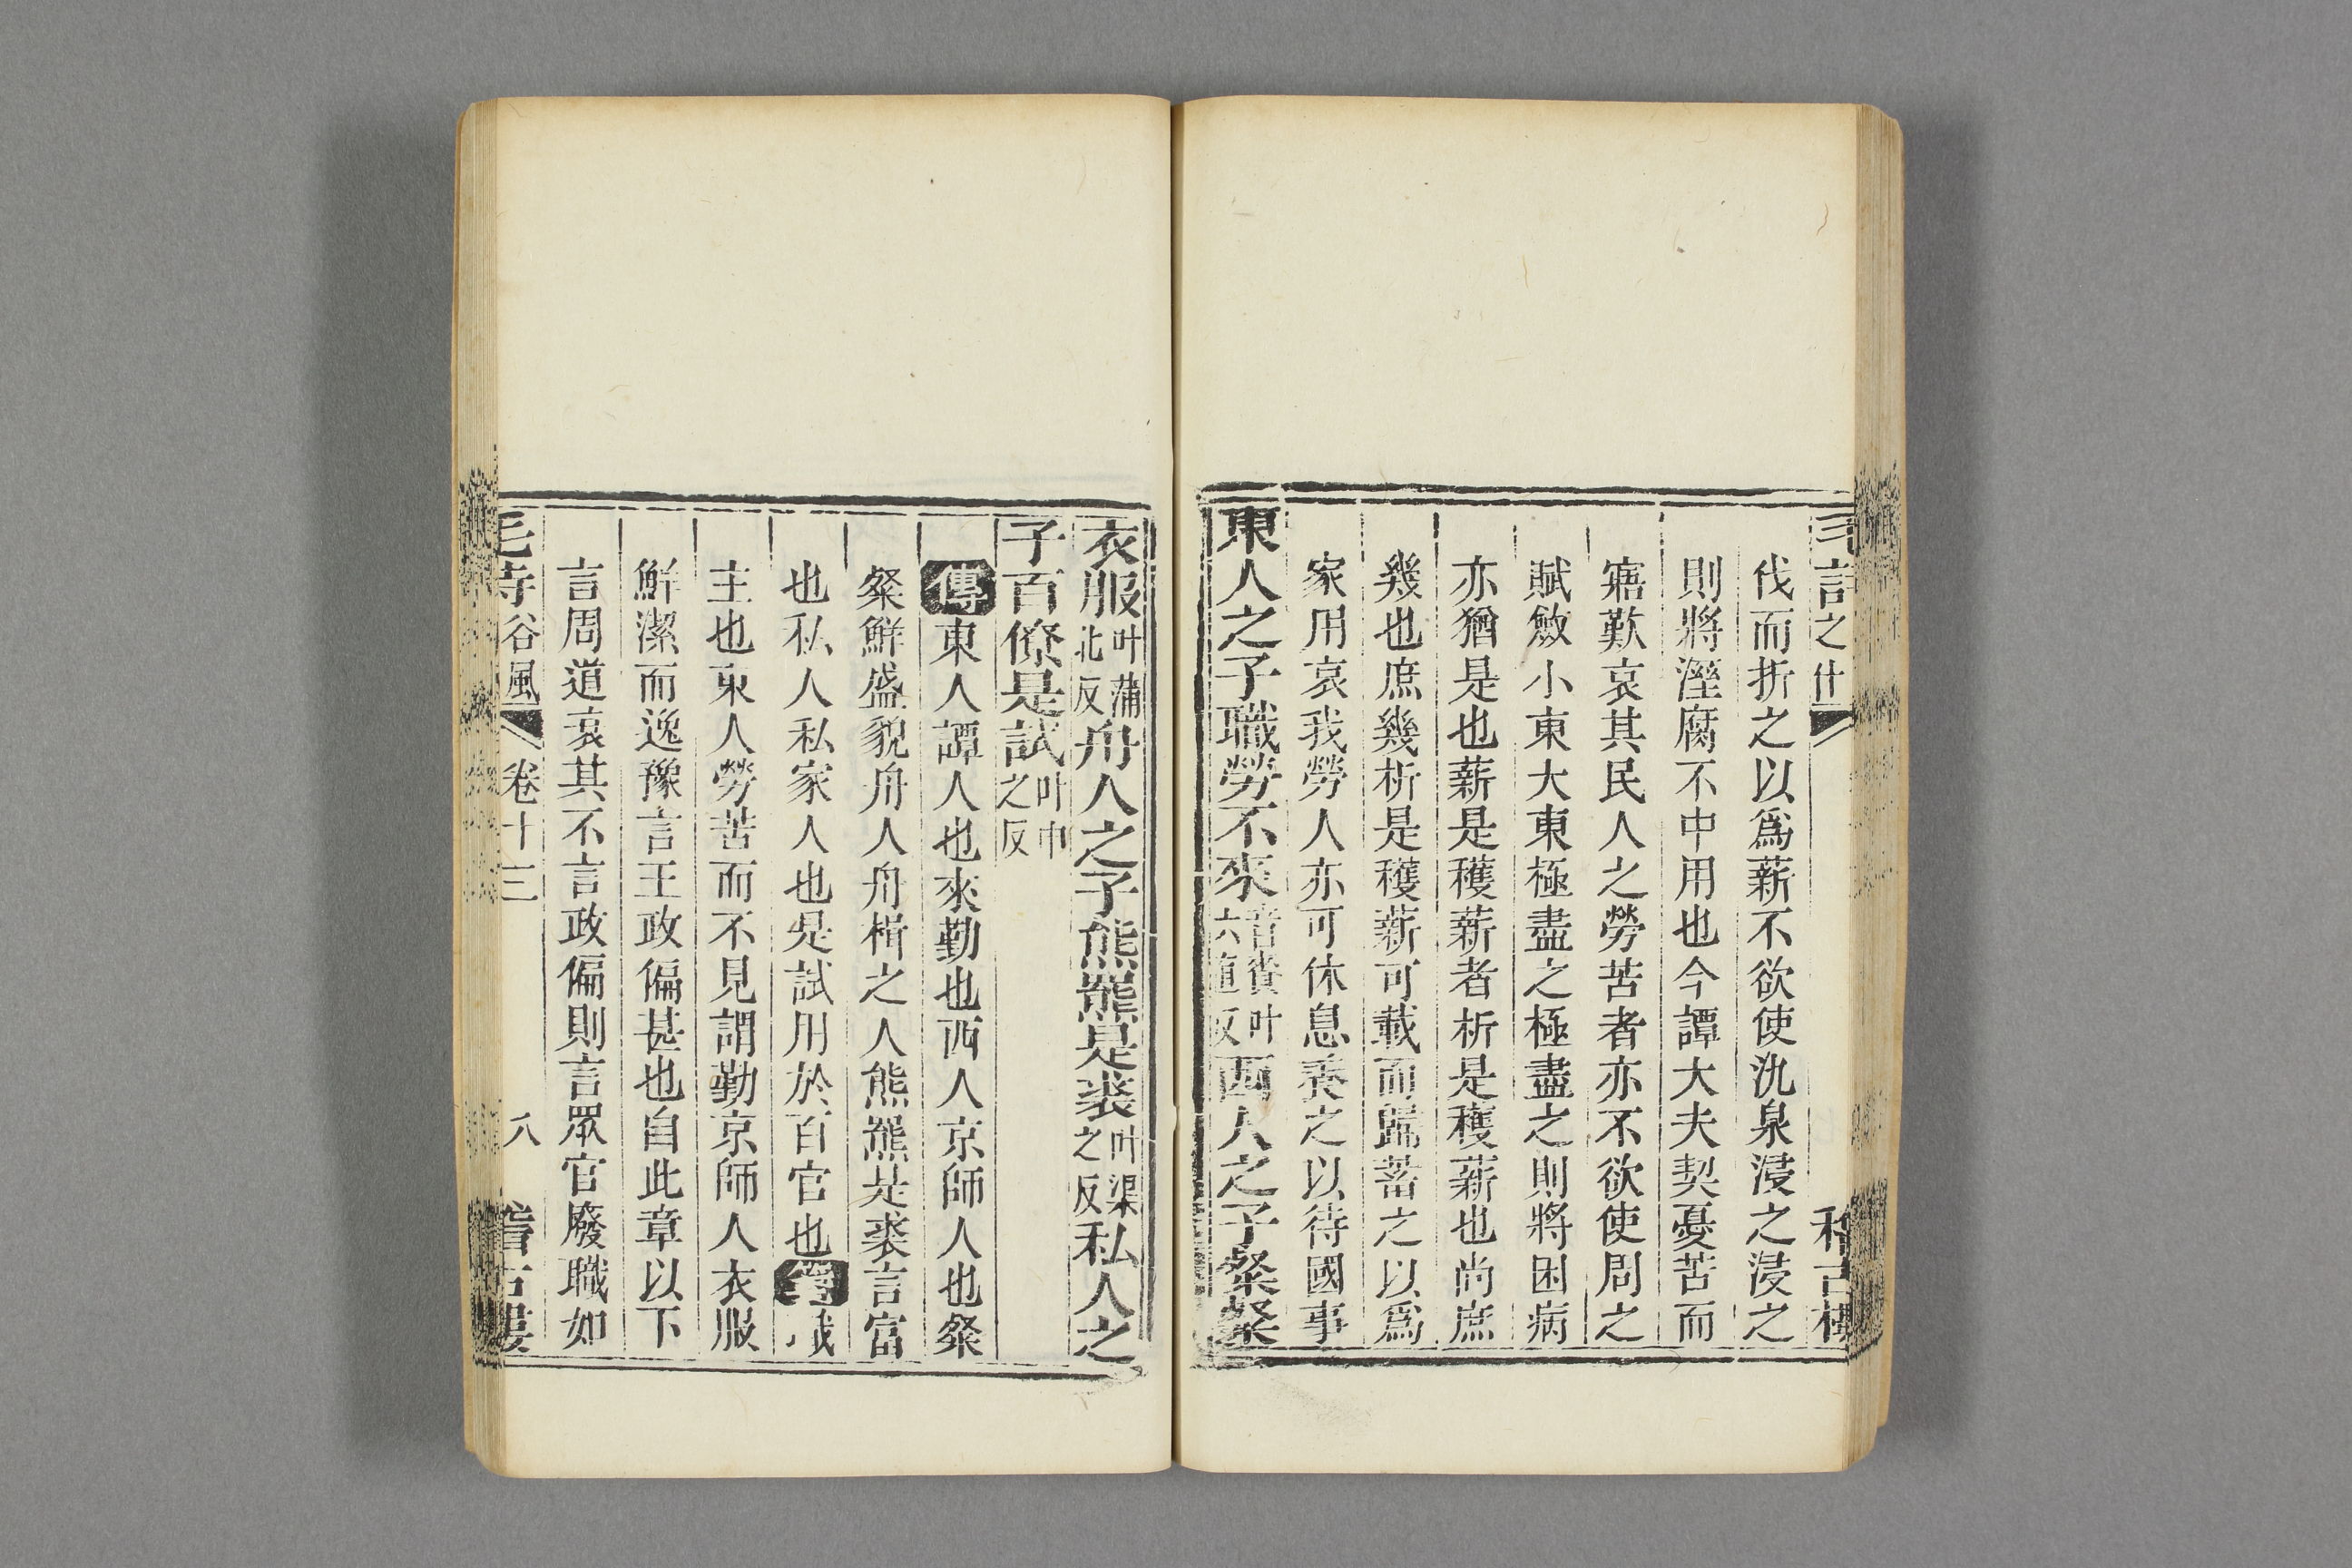 伐而折之以爲薪不欲使氿泉浸之浸之
則將溼腐不中用也今譚大夫契憂苦而
寤歎哀其民人之勞苦者亦不欲使周之
賦斂小東大東極盡之極盡之則將困病
亦猶是也薪是穫薪者析是穫薪也尚庶
幾也庶幾析是穫薪可載而歸蓄之以爲
家用哀我勞人亦可休息養之以待國事
東人之子職勞不來音賚叶六直反西人之子粲粲
衣服叶蒲北反舟人之子熊羆是裘叶渠之反私人之
子百僚是試叶申之反
傳東人譚人也來勤也西人京師人也粲
粲鮮盛貌舟人舟楫之人熊羆是裘言富
也私人私家人也是試用於百官也箋職
主也東人勞苦而不見謂勤京師人衣服
鮮潔而逸豫言王政偏甚也自此章以下
言周道衰其不言政偏則言眾官廢職如
毛詩谷風 卷十三 八 稽古樓